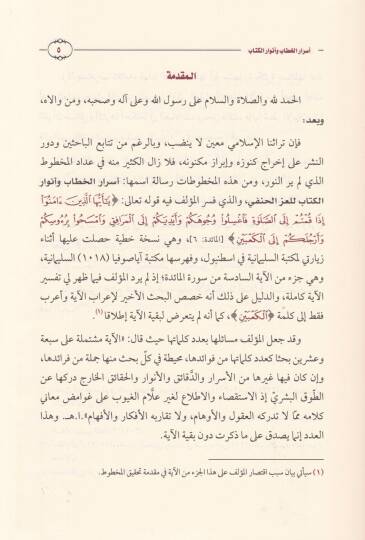 أسرار الخطاب وأنوار الكتاب
٥
المقدمة
الحمد لله والصلاة والسلام على رسول الله وعلى آله وصحبه، ومن والاه،
وبعد:
فإن تراثنا الإسلامي معين لا ينضب، وبالرغم من تتابع الباحثين ودور
النشر على إخراج كنوزه وإبراز مكنونه، فلا زال الكثير منه في عداد المخطوط
الذي لم ير النور، ومن هذه المخطوطات رسالة اسمها: أسرار الخطاب وأنوار
الكتاب للعز الحنفي، والذي فسر المؤلف فيه قوله تعالى: ﴿يَٰٓأَيُّهَا ٱلَّذِينَ ءَامَنُوٓاْ
إِذَا قُمۡتُمۡ إِلَى ٱلصَّلَوٰةِ فَٱغۡسِلُواْ وُجُوهَكُمۡ وَأَيۡدِيَكُمۡ إِلَى ٱلۡمَرَافِقِ وَٱمۡسَحُواْ بِرُءُوسِكُمۡ
وَأَرۡجُلَكُمۡ إِلَى ٱلۡكَعۡبَيۡنِ﴾ [المائدة: ٦]، وهي نسخة خطية حصلت عليها أثناء
زيارتي لمكتبة السليمانية في اسطنبول، وفهرسها مكتبة آياصوفيا (١٠١٨) السليمانية،
وهي جزء من الآية السادسة من سورة المائدة؛ إذ لم يرد المؤلف فيما ظهر لي تفسير
الآية كاملة، والدليل على ذلك أنه خصص البحث الأخير لإعراب الآية وأعرب
فقط إلى كلمة ﴿ٱلۡكَعۡبَيۡنِ﴾، كما أنه لم يتعرض لبقية الآية إطلاقا(١).
وقد جعل المؤلف مسائلها بعدد كلماتها حيث قال: «الآية مشتملة على سبعة
وعشرين بحثا كعدد كلماتها من فوائدها، محيطة في كلّ بحث منها جملة من فرائدها،
وإن كان فيها غيرها من الأسرار والدَّقائق والأنوار والحقائق الخارج دركها عن
الطَّوق البشريّ إذ الاستقصاء والاطلاع لغير علَّام الغيوب على غوامض معاني
كلامه ممَّا لا تدركه العقول والأوهام، ولا تقاربه الأفكار والأفهام».ا.هـ. وهذا
العدد إنما يصدق على ما ذكرت دون بقية الآية.
(١) سيأتي بيان سبب اقتصار المؤلف على هذا الجزء من الآية في مقدمة تحقيق المخطوط.